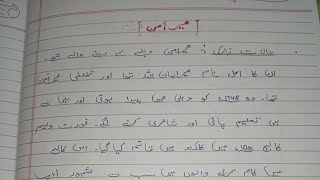 [ میر امن ]
حالات زندگی : میر امن دہلی کے رہنے والے تھے۔
ان کا اصل نام میر امان اللہ تھا اور تخلص میر امن
تھا۔ وہ کو دہلی میں پیدا ہوئے اور یہاں سے
ہی تعلیم پائی اور شاعری کرنے لگے۔ فورٹ ولیم
کالج میں کلکتہ میں قائم کیا گیا۔ اس کالج
میں کام کرنے والوں میں سب سے مشہور ادیب